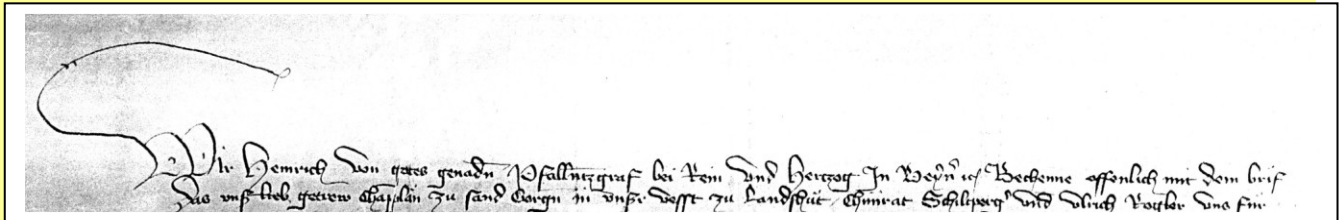 Wir Heinrich von gotes genadn Pfallnczgraf bei Rein vnd Herczog In Beyrn etc Bechenne offenlich mit dem brif
Das vnser lieb getrew Chapplan zu sand Gorgn in vnser Vesst zu Landshut Chunrat Schiltperg vnd Vlrich Rogler vns für